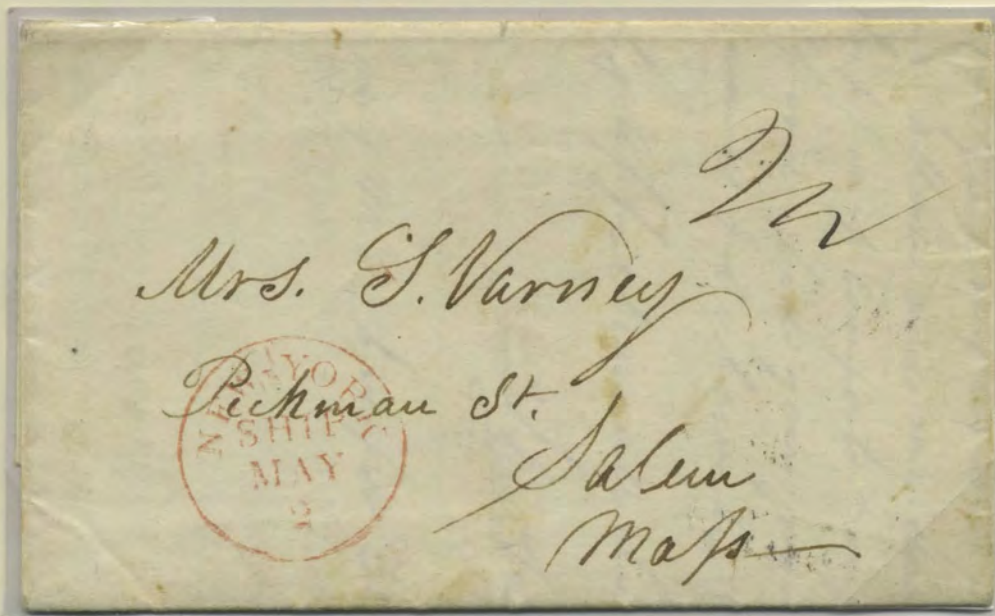 Mrs. S. Varney
Peckman St.
Salem
Mass
NEW YORK
SHIP
MAY
2